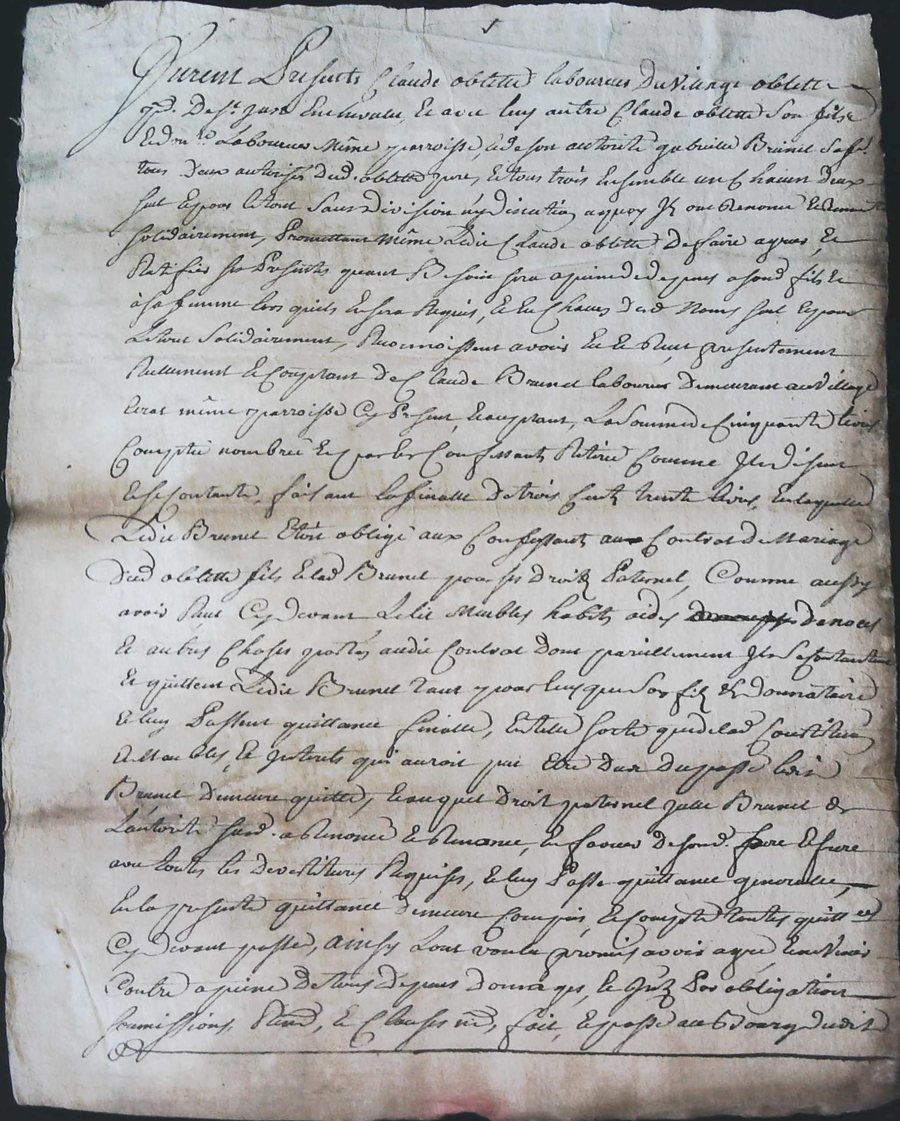 Furent Presents Claude oblette laboureur du village oblette
psse. De st. Just En chevalet, Et avec luy autre Claude oblette son fils
Laboureur Même parroisse, & de son autorité gabrielle Brunel sa fe.
tous deux autorisés dud. oblette pere, Et tous trois Ensemble un Chacun deux
seul Et pour le tout sans division ny discution a quoy Ils ont Renoncé
solidairement, Promettant Même Ledit Claude oblette De faire agreer, Et
Ratifier ses Presentes quant Besoin sera a peine de depens a sond. fils Et
à sa femme lors quils En sera Requis, Et En Chacun desd. Noms seul Et pour
Le tout solidairement, Reconnoissent avoir Eu Et Reçu presentement
Reellement Et Comptant De Claude Brunel laboureur Demeurant au village
même parroisse Cy Present, Et acceptant, La somme de Cinquante livres
Comptée nombrée Et par les Confessants Retirée Comme Ils disent
Et se Contante, faisant la finalle De trois Cents trente livres, En laquelle
Ledit Brunel Etoit obligé aux Confessants au Contrat de Mariage
Dud. oblette fils Et lad. Brunel pour ses Droits Paternel, Comme aussy
avoir Reçu Cy devant Le lit Meubles habits aides de noces
Et autres Choses portés audit Contrat dont pareillement Ils se Contantent
Et quittent Ledit Brunel tant pour luy que son fils Et donnataire
Et luy Passent quittance finalle, En telle sorte que de lad. Constitution
Et Meubles, Et Interets qui auroit pu Etre Dus Du passé ledit
Brunel Demeure quitte, Et auquel Droit paternel Brunel de
L'autorité susd. a Renoncé Et Renonce, En faveur de sond. frere
avec toutes les devestitures Requises, Et luy Passe quittance generalle,
En la presente quittance demeure Compris, Et Compté toutes quittances
Cy devant passée, Ainsy L'ont voulu promis avoir agreé
Contre a peine De tous Depens Domages, Et Int. Par obligation
soumissions, Et Clauses fait, Et passé au Bourg dudit